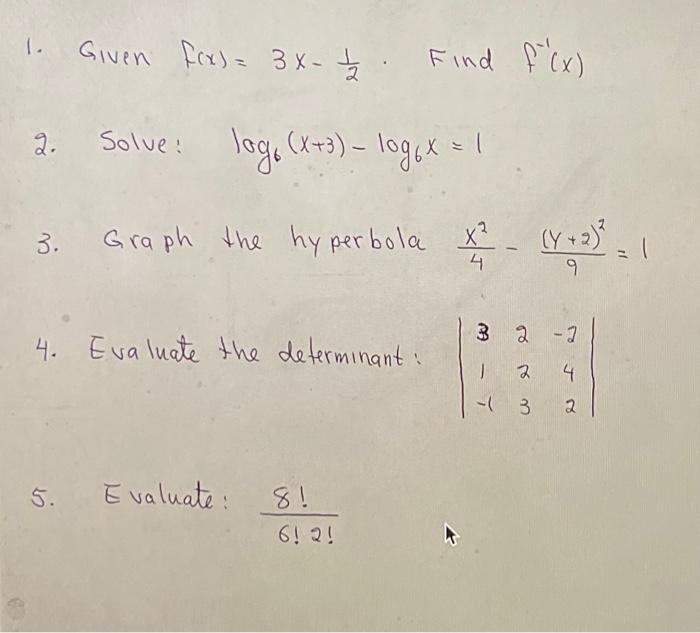 1. Given f(x) = 3x - 1/2 . Find f⁻¹(x)
2. Solve: log₆(x+3) - log₆x = 1
3. Graph the hyperbola x²/4 - (y+2)²/9 = 1
4. Evaluate the determinant: | 3 2 -2 |
| 1 2 4 |
| -1 3 2 |
5. Evaluate: 8! / 6! 2!